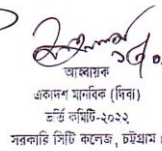 আহবায়ক
একাদশ মানবিক (দিবা)
ভর্তি কমিটি-২০২২
সরকারি সিটি কলেজ, চট্টগ্রাম।